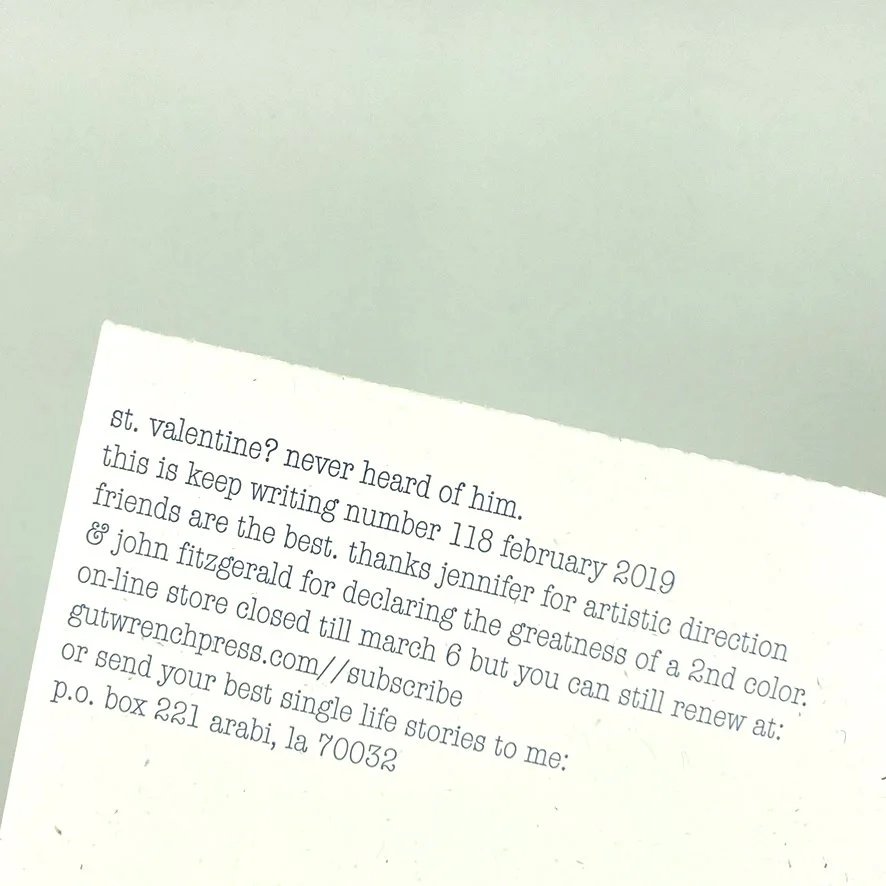 st. valentine? never heard of him.
this is keep writing number 118 february 2019
friends are the best. thanks jennifer for artistic direction
& john fitzgerald for declaring the greatness of a 2nd color.
on-line store closed till march 6 but you can still renew at:
gutwrenchpress.com//subscribe
or send your best single life stories to me:
p.o. box 221 arabi, la 70032